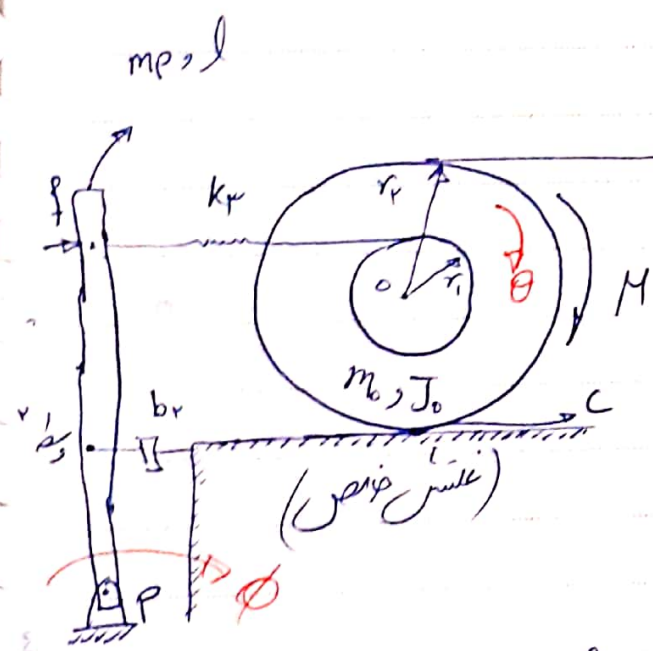 mP, l
f
k۳
r۲
r۱
o
θ
M
m₀, J₀
b۲
C
(غلتش خالص)
P
ϕ